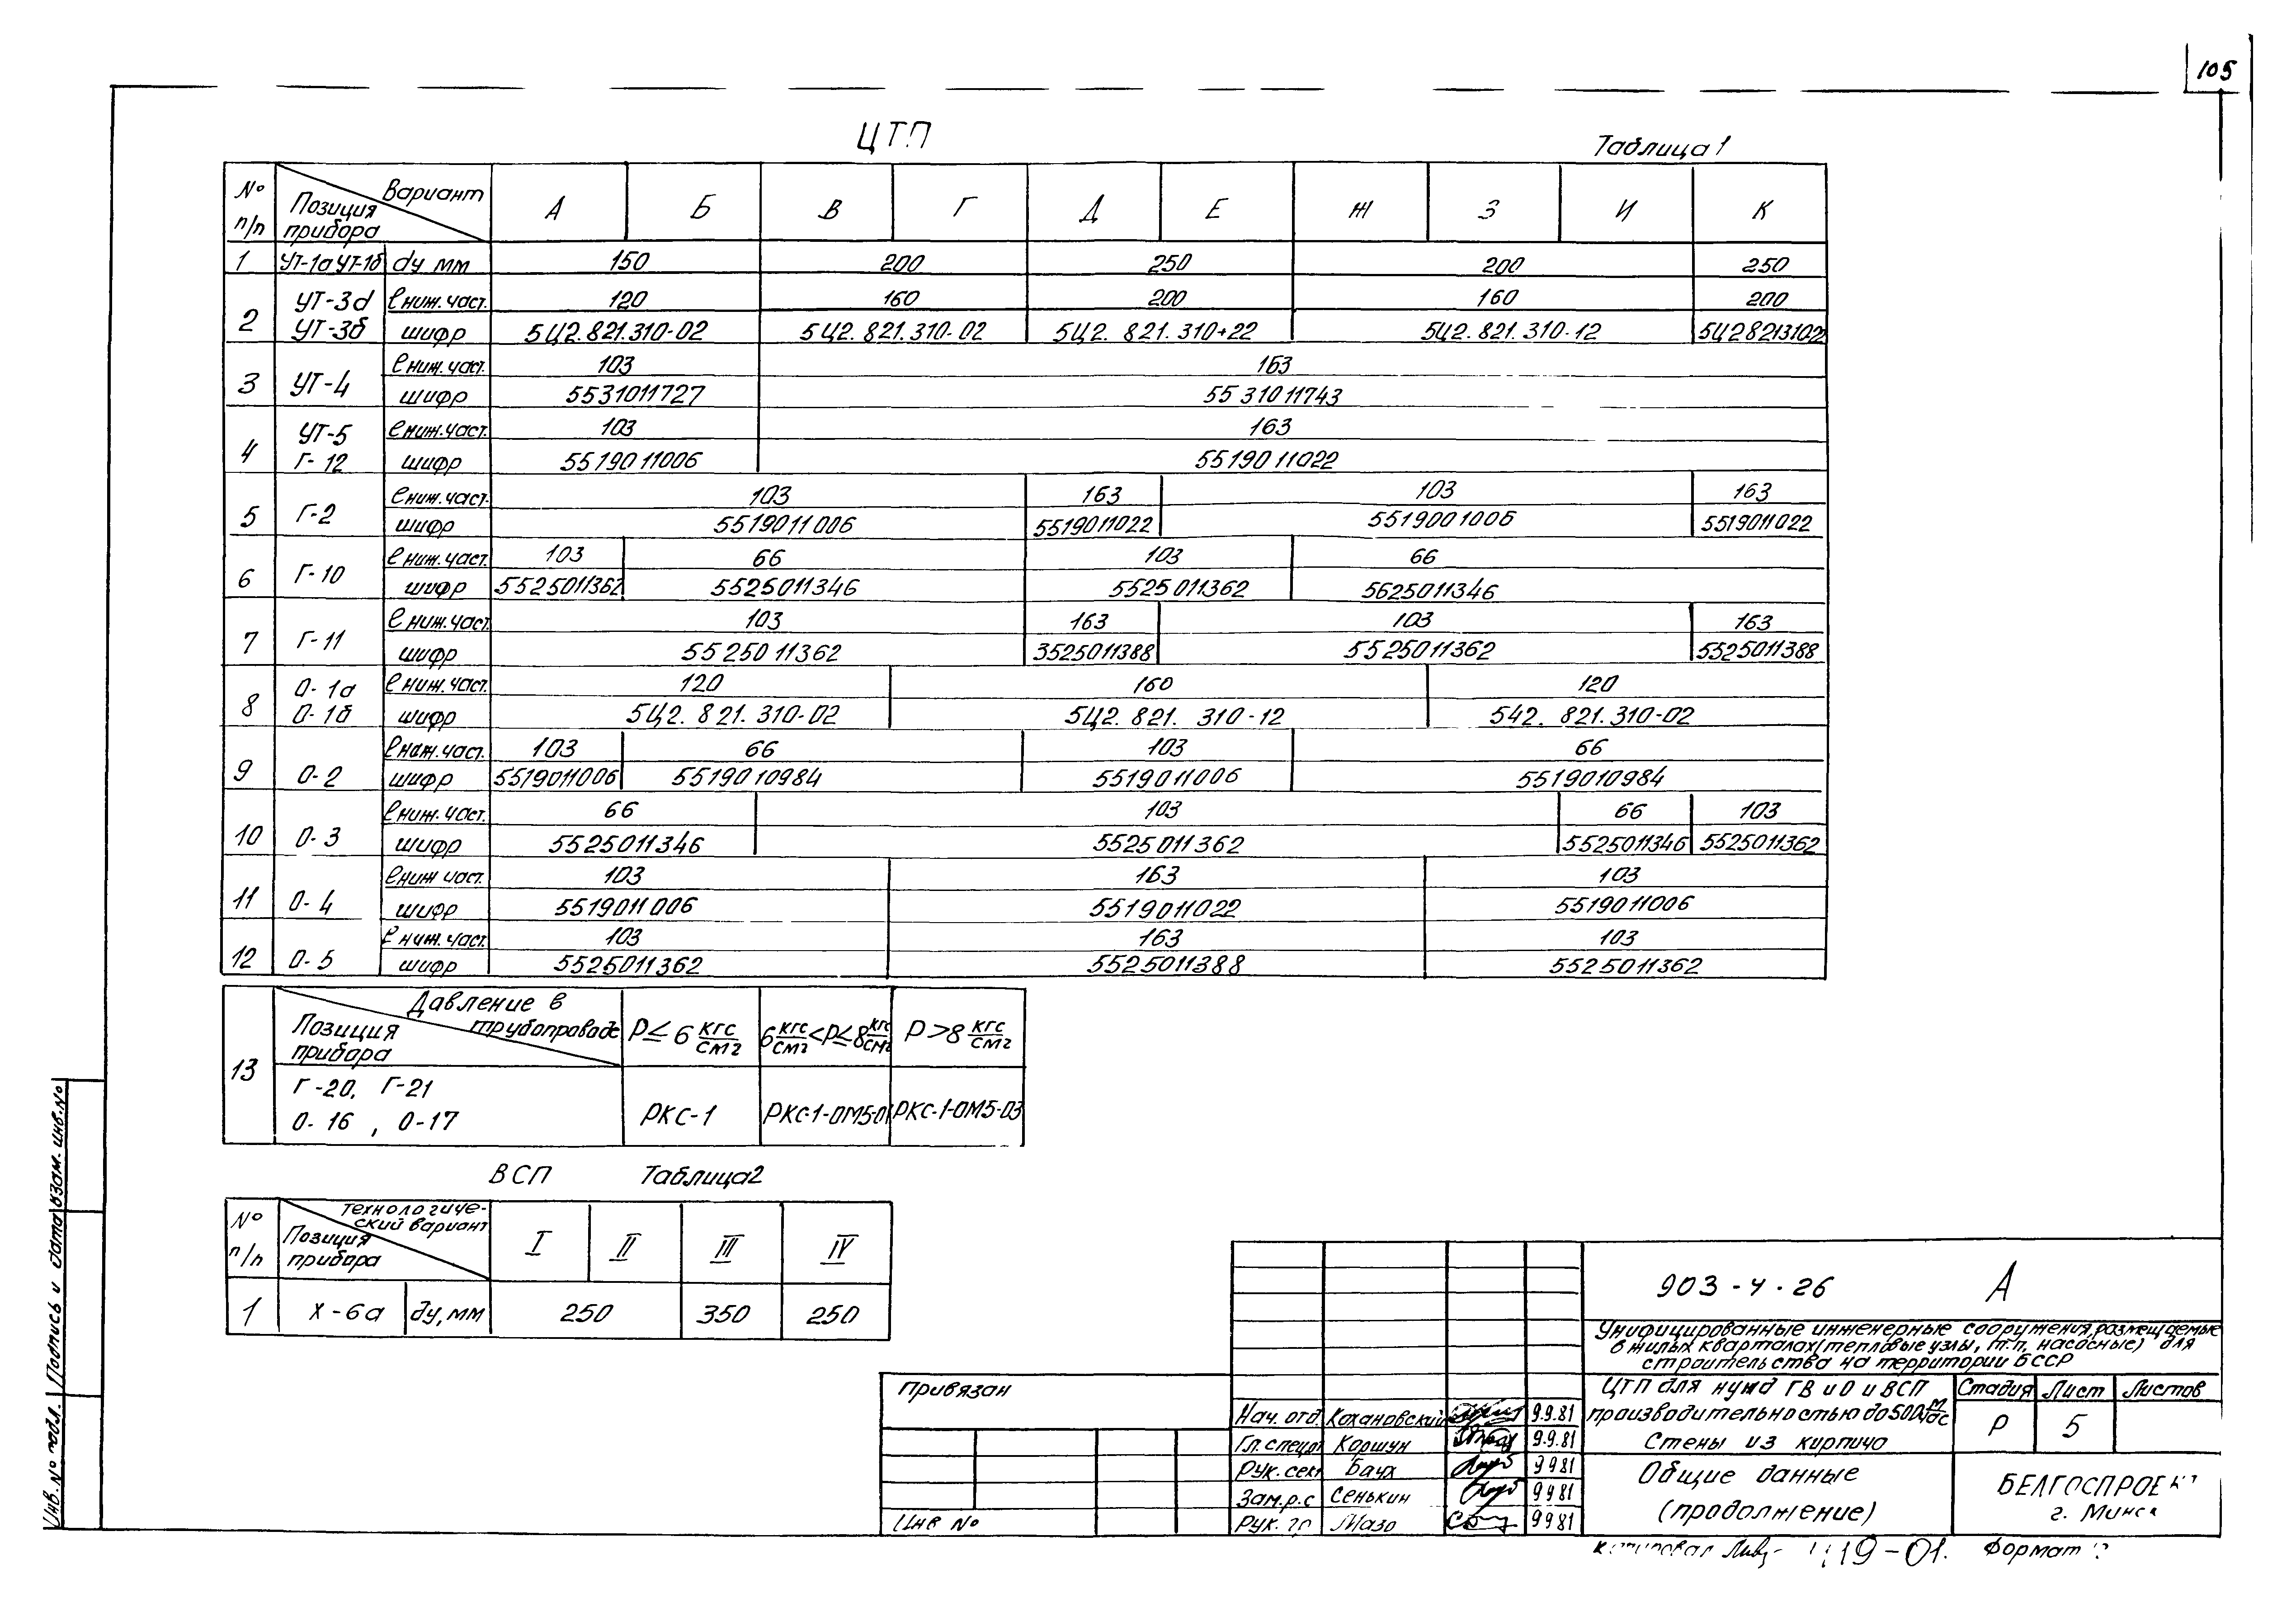 105
ЦТП
Таблица 1
№ п/п
Вариант
Позиция прибора
А Б В Г Д Е Ж З И К
1 УТ-1а УТ-1б dу мм 150 200 250 200 250
2 УТ-3а УТ-3б
ℓ ниж. част. 120 160 200 160 200
шифр 5Ц2.821.310-02 5Ц2.821.310-02 5Ц2.821.310+22 5Ц2.821.310-12 5Ц2821310-22
3 УТ-4
ℓ ниж. част. 103 163
шифр 5531011727 5531011743
4 УТ-5 Г-12
ℓ ниж. част. 103 163
шифр 5519011006 5519011022
5 Г-2
ℓ ниж. част. 103 163 103 163
шифр 5519011006 5519011022 5519001006 5519011022
6 Г-10
ℓ ниж. част. 103 66 103 66
шифр 5525011362 5525011346 5525011362 5625011346
7 Г-11
ℓ ниж. част. 103 163 103 163
шифр 5525011362 3525011388 5525011362 5525011388
8 О-1а О-1б
ℓ ниж. част. 120 160 120
шифр 5Ц2.821.310-02 5Ц2.821.310-12 542.821.310-02
9 О-2
ℓ ниж. част. 103 66 103 66
шифр 5519011006 5519010984 5519011006 5519010984
10 О-3
ℓ ниж. част. 66 103 66 103
шифр 5525011346 5525011362 5525011346 5525011362
11 О-4
ℓ ниж част. 103 163 103
шифр 5519011006 5519011022 5519011006
12 О-5
ℓ ниж. част. 103 163 103
шифр 5525011362 5525011388 5525011362
13
Давление в трубопроводе
Позиция прибора
P ≤ 6 кгс/см2 6 кгс/см2 < P ≤ 8 кгс/см2 P > 8 кгс/см2
Г-20, Г-21
О-16, О-17
РКС-1 РКС-1-ОМ5-01 РКС-1-ОМ5-03
ВСП Таблица2
№ п/п
Технологический вариант
Позиция прибора
I II III IV
1 Х-6а dу, мм 250 350 250
Привязан
Инв №
903-4-26 А
Унифицированные инженерные сооружения, размещаемые
в жилых кварталах (тепловые узлы, т.п, насосные) для
строительства на территории БССР
ЦТП для нужд ГВ и О и ВСП
производительностью до 500 м/час
Стены из кирпича
Стадия Лист Листов
Р 5
Нач. отд. Кохановский 9.9.81
Гл. спец. Коршун 9.9.81
Рук. сект Баух 9981
Зам. р. с Сенькин 9981
Рук. гр Мазо 9981
Общие данные
(продолжение)
БЕЛГОСПРОЕКТ
г. Минск
Копировал
19-01.
Формат
Инв. № подл. Подпись и дата Взам. инв. №